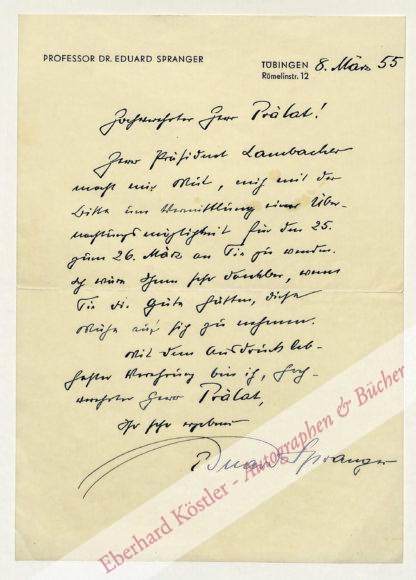 PROFESSOR DR. EDUARD SPRANGER
TÜBINGEN 8. März 55
Römelinstr. 12
Hochverehrter Herr Prälat!
Herr Präsident Lambacher
macht mir Mut, mich mit der
Bitte um Vermittlung einer Über-
nachtungsmöglichkeit für den 25.
zum 26. März an Sie zu wenden.
Ich wäre Ihnen sehr dankbar, wenn
Sie die Güte hätten, diese
Mühe auf sich zu nehmen.
Mit dem Ausdruck leb-
hafter Verehrung bin ich, hoch-
verehrter Herr Prälat,
Ihr sehr ergebener
Eduard Spranger
Eberhard Köstler - Autographen & Bücher